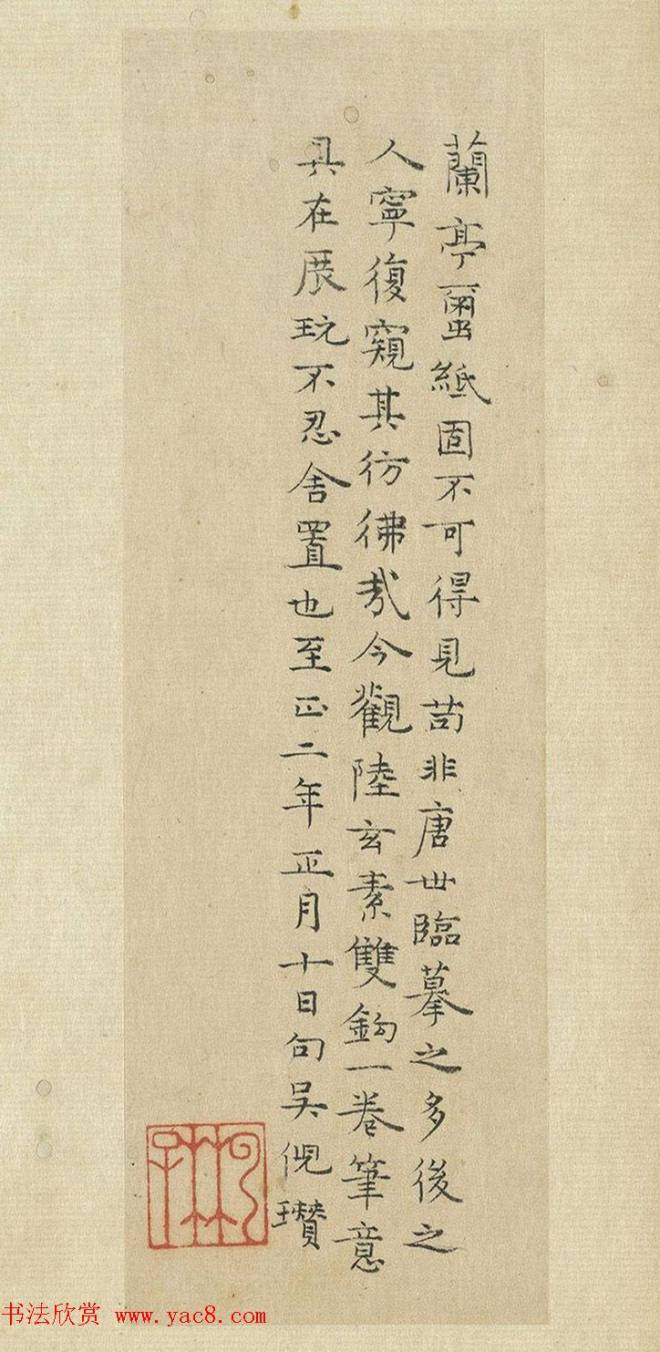 蘭亭蠒紙固不可得見茍非唐世臨摹之多後之
人寧復窺其彷彿哉今觀陸玄素雙鈎一卷筆意
具在展玩不忍舍置也至正二年正月十日句吳倪瓚
书法欣赏 www.yac8.com